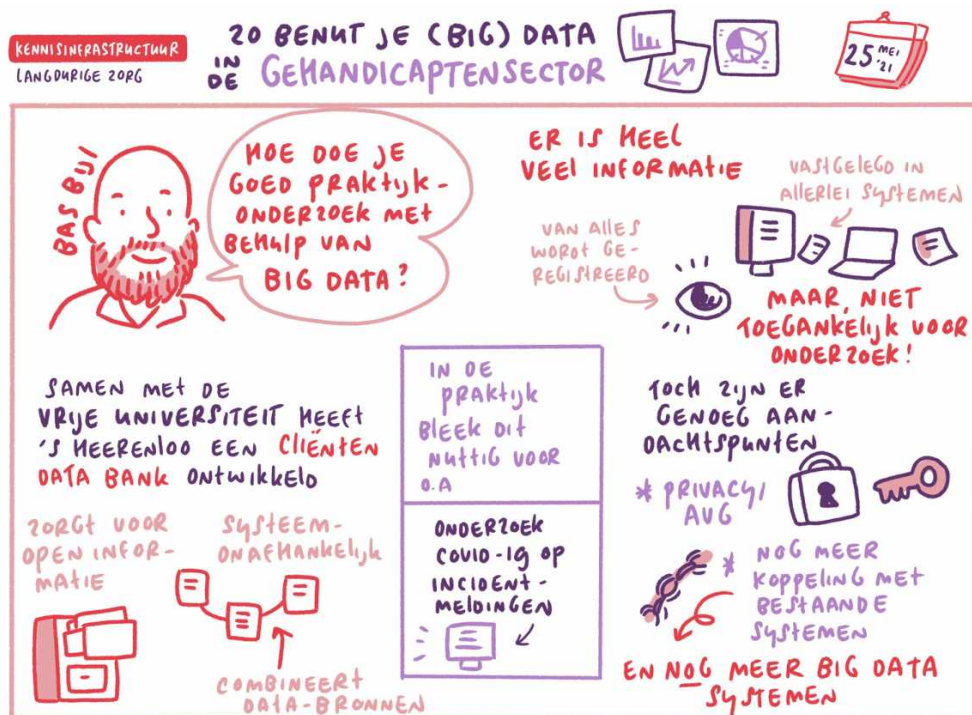 KENNISINFRASTRUCTUUR
LANGDURIGE ZORG
ZO BENUT JE (BIG) DATA
IN DE GEHANDICAPTENSECTOR
25 MEI '21
BAS BIJL
HOE DOE JE
GOED PRAKTIJK-
ONDERZOEK MET
BEHULP VAN
BIG DATA?
ER IS HEEL
VEEL INFORMATIE
VASTGELEGD IN
ALLERLEI SYSTEMEN
VAN ALLES
WORDT GE-
REGISTREERD
MAAR, NIET
TOEGANKELIJK VOOR
ONDERZOEK!
SAMEN MET DE
VRIJE UNIVERSITEIT HEEFT
'S HEERENLOO EEN CLIËNTEN
DATA BANK ONTWIKKELD
ZORGT VOOR
OPEN INFOR-
MATIE
SYSTEEM-
ONAFHANKELIJK
COMBINEERT
DATA-BRONNEN
IN DE
PRAKTIJK
BLEEK DIT
NUTTIG VOOR
O.A
ONDERZOEK
COVID-19 OP
INCIDENT-
MELDINGEN
TOCH ZIJN ER
GENOEG AAN-
DACHTSPUNTEN
* PRIVACY/
AVG
* NOG MEER
KOPPELING MET
BESTAANDE
SYSTEMEN
EN NOG MEER BIG DATA
SYSTEMEN